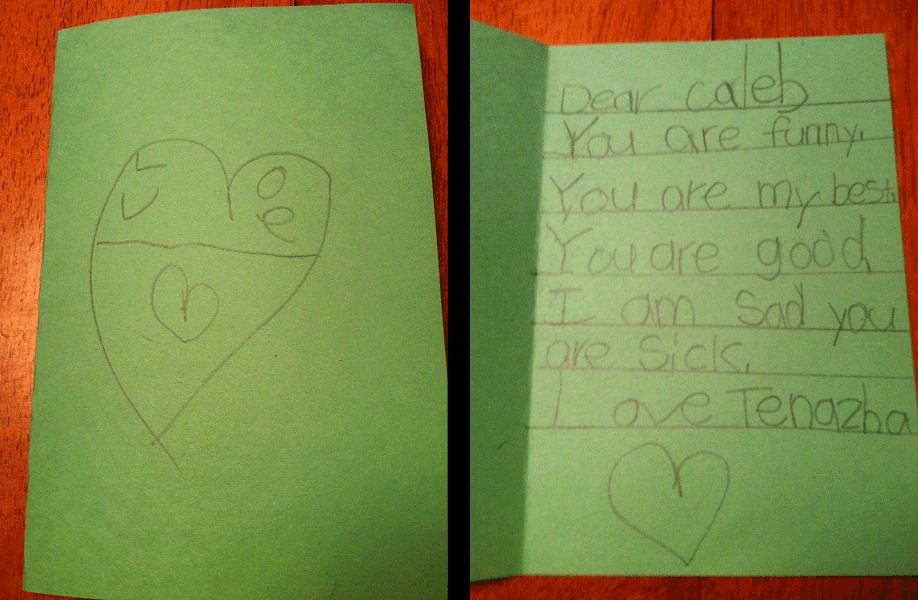 L O
V e
Dear caleb
You are funny.
You are my best.
You are good.
I am sad you
are sick.
Love Tenazha